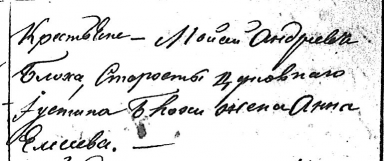 Крестьяне – Моисей Андреевъ
Блоха, Старосты Церковнаго
Іустина Блохи жена Анна
Елисеева. —